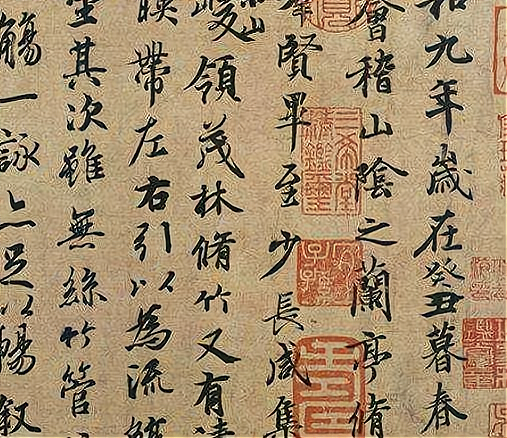 和九年歲在癸丑暮春
會稽山陰之蘭亭脩
羣賢畢至少長咸集
山
峻領茂林脩竹又有清
映帶左右引以為流觴
坐其次雖無絲竹管
觴一詠亦足以暢敘
三希堂
精鑑璽
宜
子孫